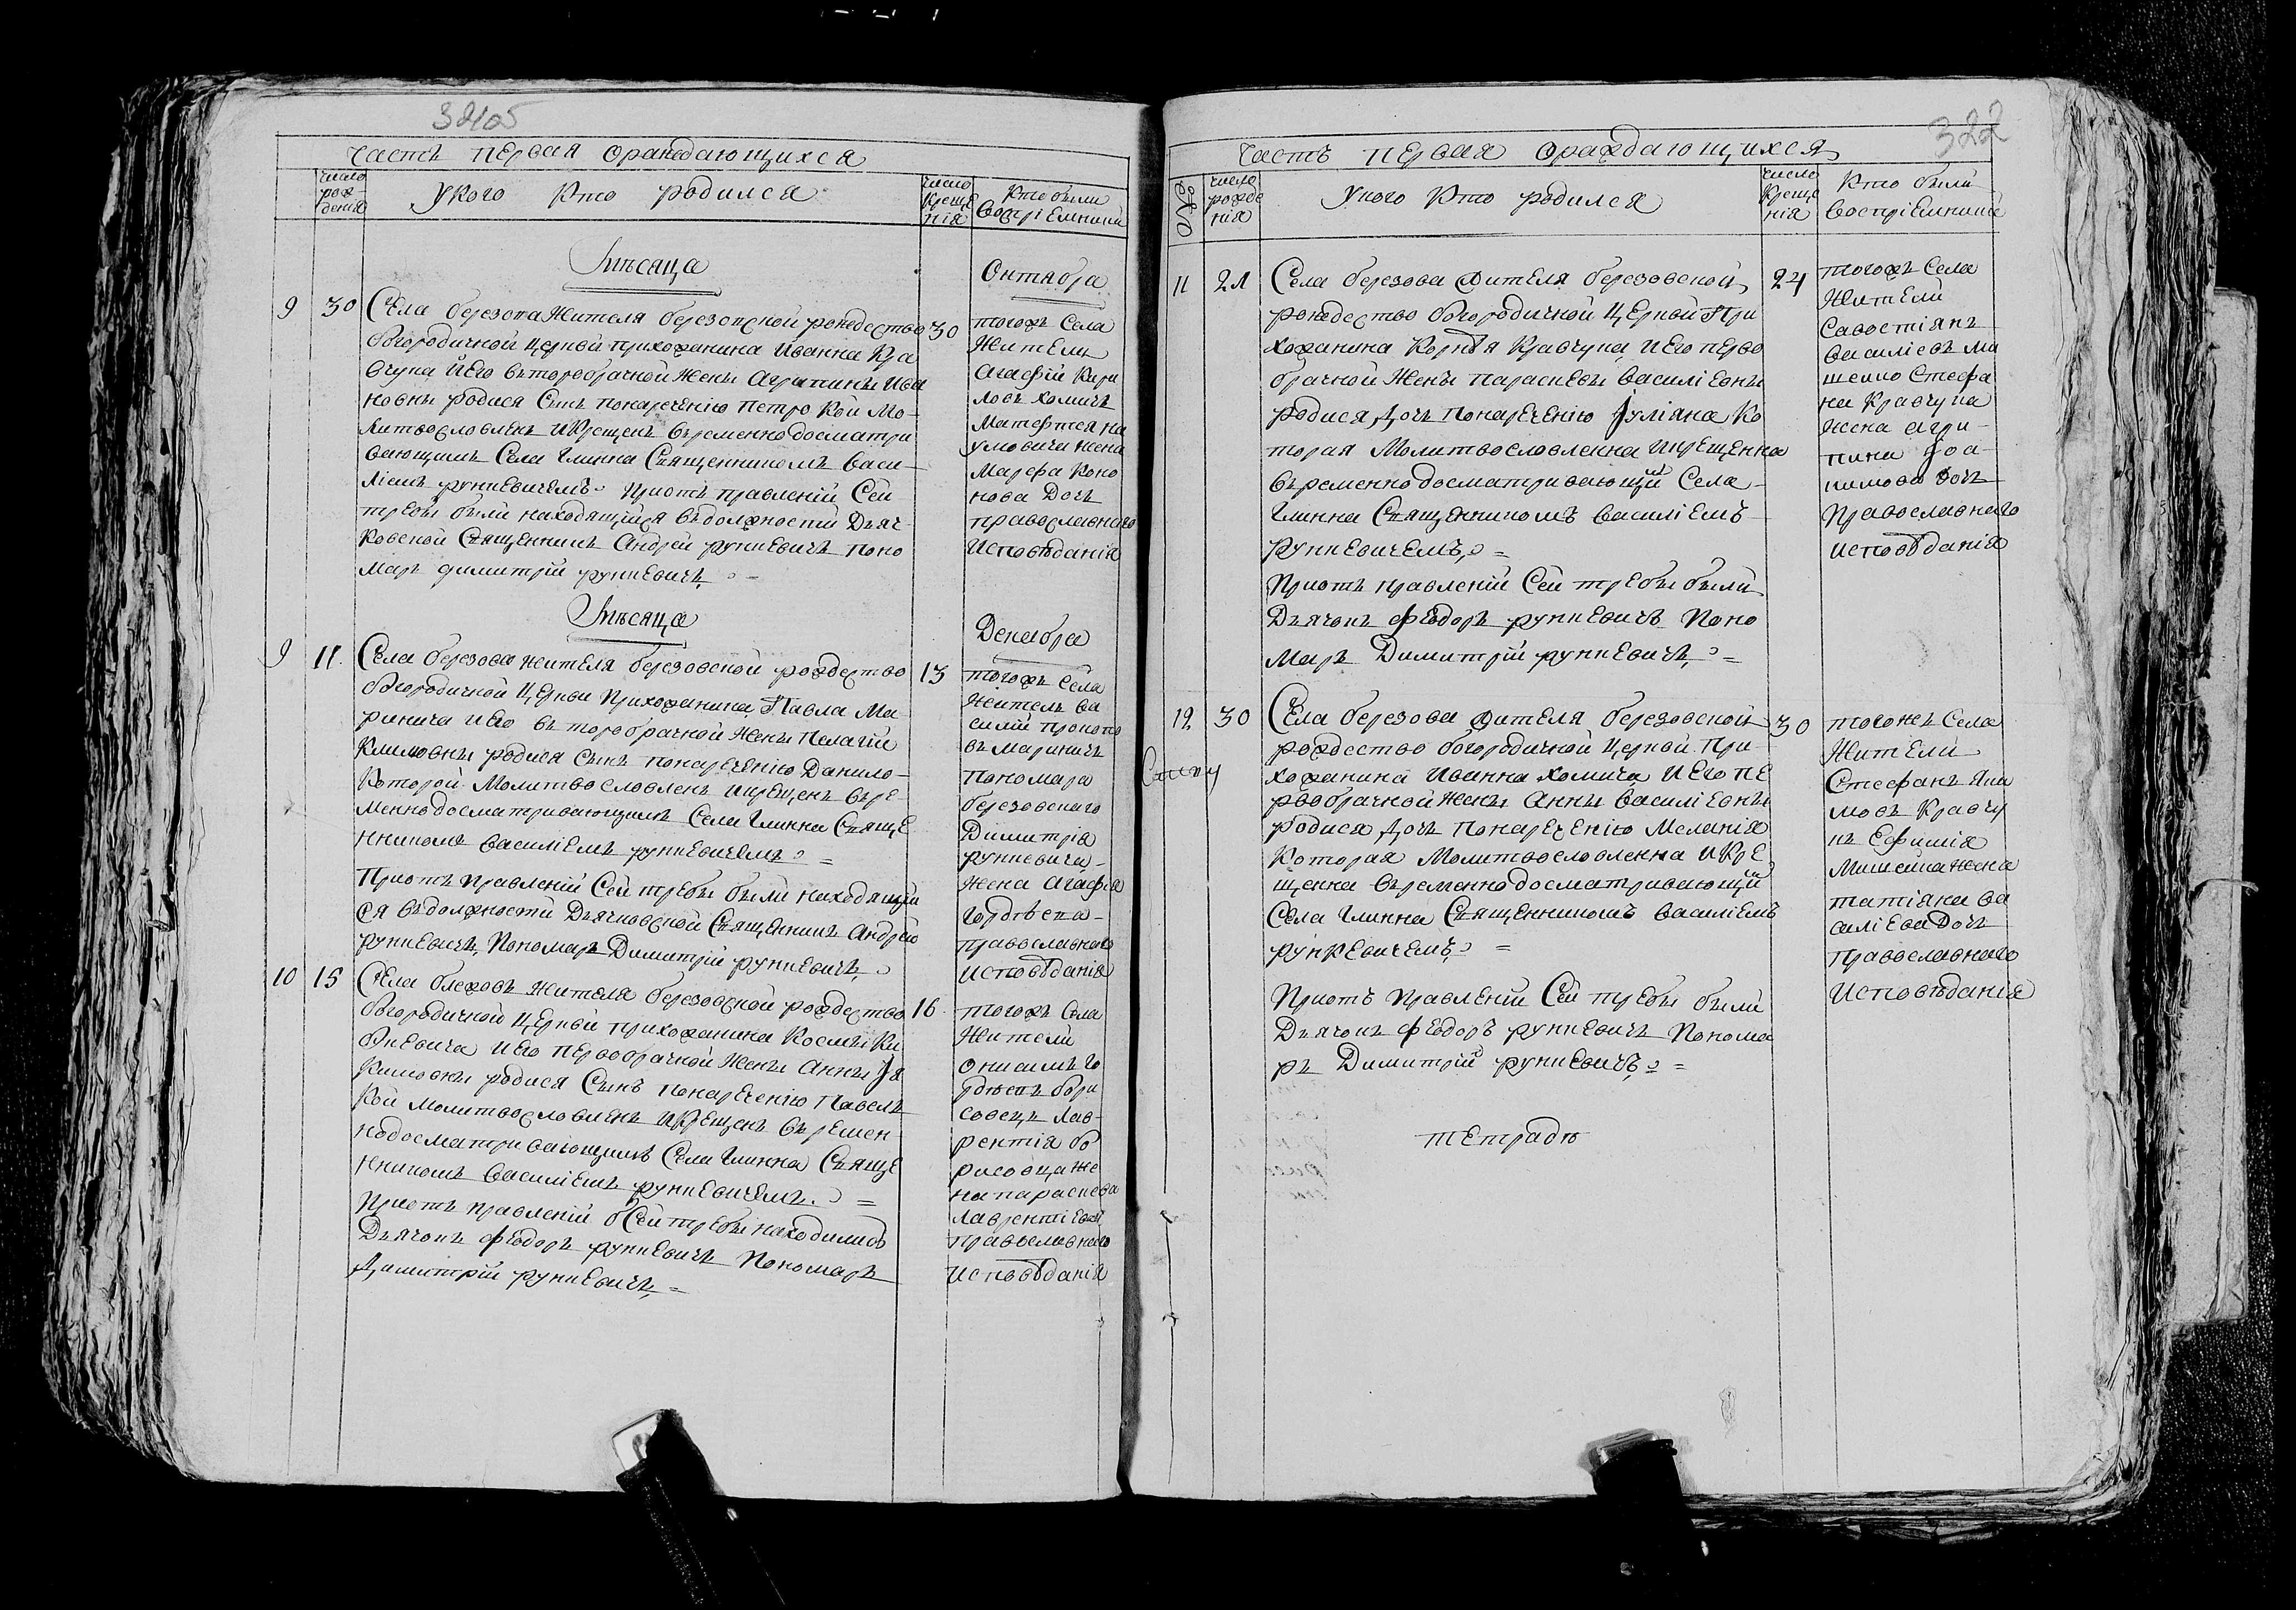 3405
Часть первая ораждающихся
число рож дения
У кого Кто родился
число Креще нія
Кто были Воспріемники
Мѣсяца
Октября
9 30
Села березова Жителя березовской рождество
богородичной Церкви прихожанина Иванна Кра
вчука И Его второбрачной Жены Агрипины Ива
новны родися Сынъ понаречению Петро Кой Мо-
литвословленъ И Крещенъ временнодосматри
вающимъ Села Глинна Священникомъ Васи-
ліемъ рункевичемъ Приотъ правленіи Сей
требы были находящійся вдолжности Дьяч-
ковской Священникъ Андрей рункевичъ Поно
маръ димитрій рункевичъ
30
тогожъ Села
Жители
Агафій Кири
ловъ хомичъ
Матфтея На
умовича жена
Марфа Коно
нова Дочь
православнаго
Исповѣданія
Мѣсяца
Декабря
9 11.
Села березова жителя березовской рождество
богородичной Церкви Прихожанина Павла Ма-
ринича И Его второбрачной Жены Пелагіи
Климовны родися Сынъ понареченію Данило-
Которой Молитвословленъ Икрещенъ вре-
меннодосматривающимъ Села Глинна Свяще
нникомъ Василіемъ рункевичемъ
Приотъ правленіи Сей требы были находящій
ся вдолжности Дьячковской Священникъ Андрей
рункевичъ, Пономаръ Димитрій рункевичъ
13
тогожъ Села
Житель Ва
силій прокопо
въ Мариничъ
пономаря
березовскаго
Димитрія
рункевича-
Жена Агафія
Гордѣева-
православнаго
исповѣданія
10 15
Села Жителя березовской рождество
богородичной Церкви прихожанина Космы Ки
бкевича И Его первобрачной Жены Анны Уя
кимовны родися Сынъ понареченію Павелъ
Кой Молитвословленъ И Крещенъ времен
нодосматривающимъ Села Глинна Свяще
нникомъ Василіемъ рункевичемъ.
Приотъ правленіи Сей требы находились
Дьячокъ Феодоръ рункевичъ Пономаръ
Димитрій рункевичъ
16
тогожъ Села
Жители
Онисимъ Го
рдѣевъ Бори
совецъ Лав-
рентія Бо
рисовца Же
на параскева
Лаврентіева
православнаго
Исповѣданія
322
Часть первая ораждающихся
число рожде нія
У кого Кто родился
число Креще нія
Кто были Воспріемники
11 21
Села березова Жителя березовской
рождество богородичной Церкви При
хожанина Корнѣя Кравчука И Его перво
брачной Жены Параскевы Василіевны
родися Дочь Понареченію Іуліяна Ко
торая Молитвословленна Икрещенна
временнодосматривающій Села-
Глинна Священникомъ Василіемъ
рункевичемъ
Приотъ правленіи Сей требы были
Дьячокъ Феодоръ рункевичъ Поно
маръ Димитрій рункевичъ
24
тогожъ Села
Жители
Савостіянъ
Василіевъ Ми
шейко Стефа
на Кравчука
Жена Агри-
пина Іоа-
кимова дочь
Православнаго
исповѣданія
12 30
Села березова Жителя березовской
рождество богородичной Церкви При-
хожанина Иванна Хомича И Его пе
рвобрачной Жены Анны Василіевны
родися Дочь Понареченію Меланія
Которая Молитвословленна И Кре
щенна временнодосматривающій
Села Глинна Священникомъ Василіемъ
рункевичемъ
Приотъ правленіи Сей требы были
Дьячокъ Феодоръ рункевичъ Понома
ръ Димитрій рункевичъ
30
тогожъ Села
Жители
Стефанъ Яки
мовъ Кравчу
къ Ефимія
Мишейка жена
татіяна Ва
силіева Дочь
Православнаго
Исповѣданія
тетрадь